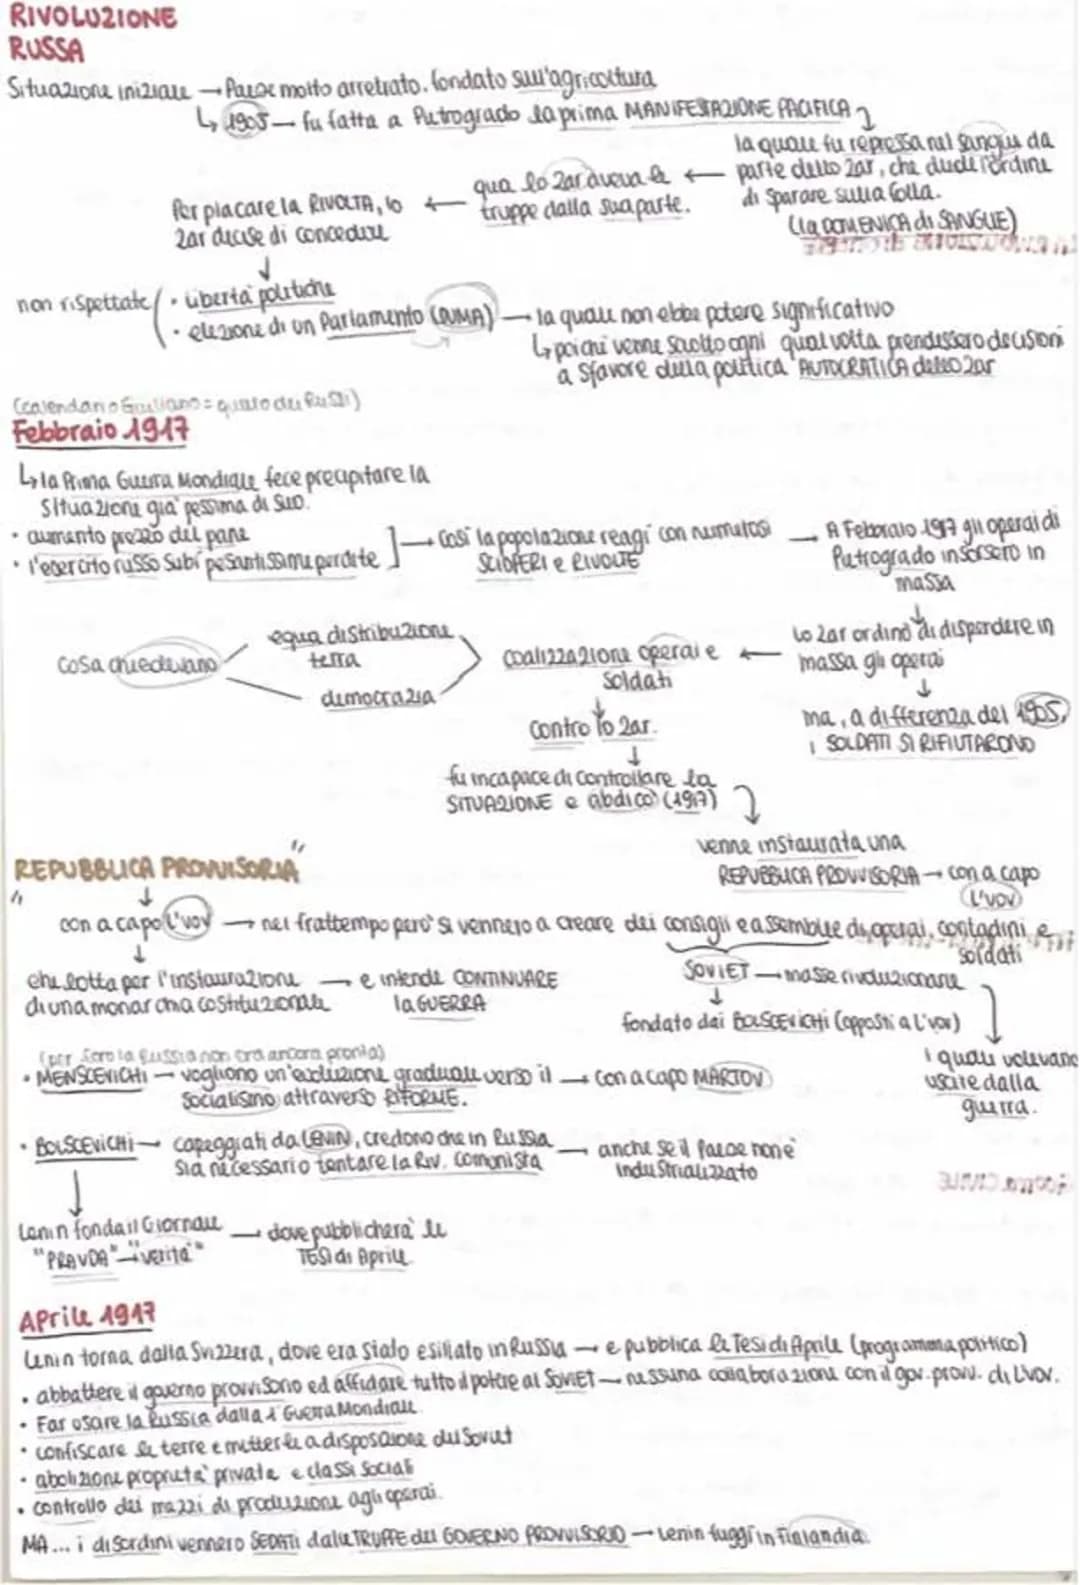 RIVOLUZIONE
RUSSA
Situazione iniziale → Paese molto arretrato, fondato sull'agricoltura
↳ 1905 — fu fatta a Pietrogrado la prima MANIFESTAZIONE PACIFICA
la quale fu repressa nel sangue da
parte dello Zar, che diede l'ordine
di sparare sulla folla.
(la DOMENICA di SANGUE)
qua lo Zar aveva le
truppe dalla sua parte.
Per placare la RIVOLTA, lo
Zar decise di concedere
non rispettate
• libertà politiche
• elezione di un Parlamento (DUMA) → la quale non ebbe potere significativo
↳ poiché venne sciolto ogni qual volta prendessero decisioni
a sfavore della politica AUTOCRATICA dello Zar
(calendario Giuliano = quello dei Russi)
Febbraio 1917
↳ la Prima Guerra Mondiale fece precipitare la
situazione già pessima di suo.
• aumento prezzo del pane
• l'esercito russo subì pesantissime perdite
→ Così la popolazione reagì con numerosi
SCIOPERI e RIVOLTE
→ A Febbraio 1917 gli operai di
Pietrogrado insorsero in
massa
lo Zar ordinò di disperdere in
massa gli operai
ma, a differenza del 1905,
i SOLDATI SI RIFIUTARONO
coalizzazione operai e
soldati
cosa chiedevano
equa distribuzione
terra
democrazia
contro lo Zar.
fu incapace di controllare la
SITUAZIONE e abdicò (1917)
venne instaurata una
REPUBBLICA PROVVISORIA → con a capo
L'vov
"REPUBBLICA PROVVISORIA"
con a capo L'vov → nel frattempo però si vennero a creare dei consigli e assemblee di operai, contadini e
soldati
che lotta per l'instaurazione
di una monarchia costituzionale
→ e intende CONTINUARE
la GUERRA
SOVIET → masse rivoluzionarie
fondato dai BOLSCEVICHI (opposti a L'vov)
i quali volevano
uscire dalla
guerra.
(per loro la Russia non era ancora pronta)
• MENSCEVICHI → vogliono un'evoluzione graduale verso il → con a capo MARTOV
socialismo attraverso RIFORME.
• BOLSCEVICHI → capeggiati da LENIN, credono che in Russia
sia necessario tentare la Riv. Comunista
→ anche se il Paese non è
industrializzato
Lenin fonda il Giornale
"PRAVDA" → "verità"
→ dove pubblicherà le
TESI di Aprile
APrile 1917
Lenin torna dalla Svizzera, dove era stato esiliato in Russia → e pubblica le Tesi di Aprile (programma politico)
• abbattere il governo provvisorio ed affidare tutto il potere al SOVIET → nessuna collaborazione con il gov. provv. di L'vov.
• Far uscire la Russia dalla 1 Guerra Mondiale
• confiscare le terre e metterle a disposizione dei Soviet
• abolizione proprietà private e classi sociali
• controllo dei mezzi di produzione agli operai.
MA... i disordini vennero SEDATI dalle TRUPPE del GOVERNO PROVVISORIO → Lenin fuggì in Finlandia.